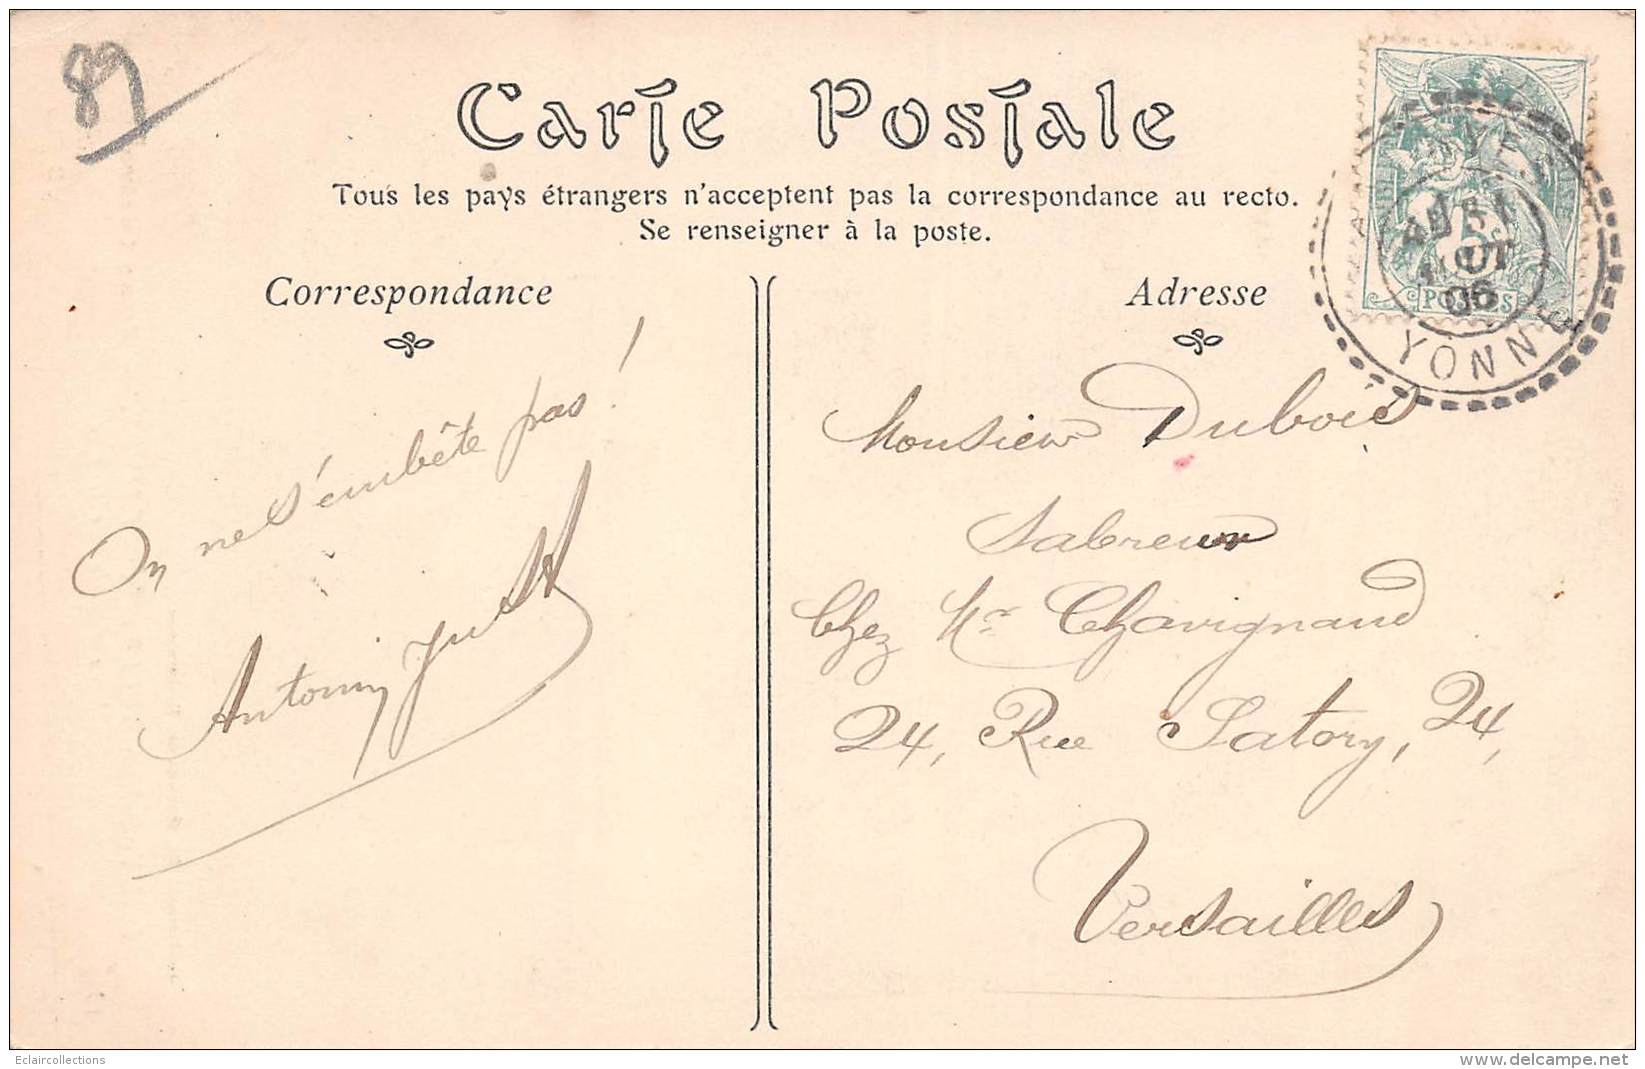 89
Carte Postale
Tous les pays étrangers n'acceptent pas la correspondance au recto.
Se renseigner à la poste.
Correspondance
On ne s'embête pas !
Antonin Just
Adresse
Monsieur Dubois
Sabreur
Chez Mr Chavignaud
24, Rue Satory, 24,
Versailles
5
POSTES
31
AOUT
06
YONNE
Eclaircollections
www.delcampe.net